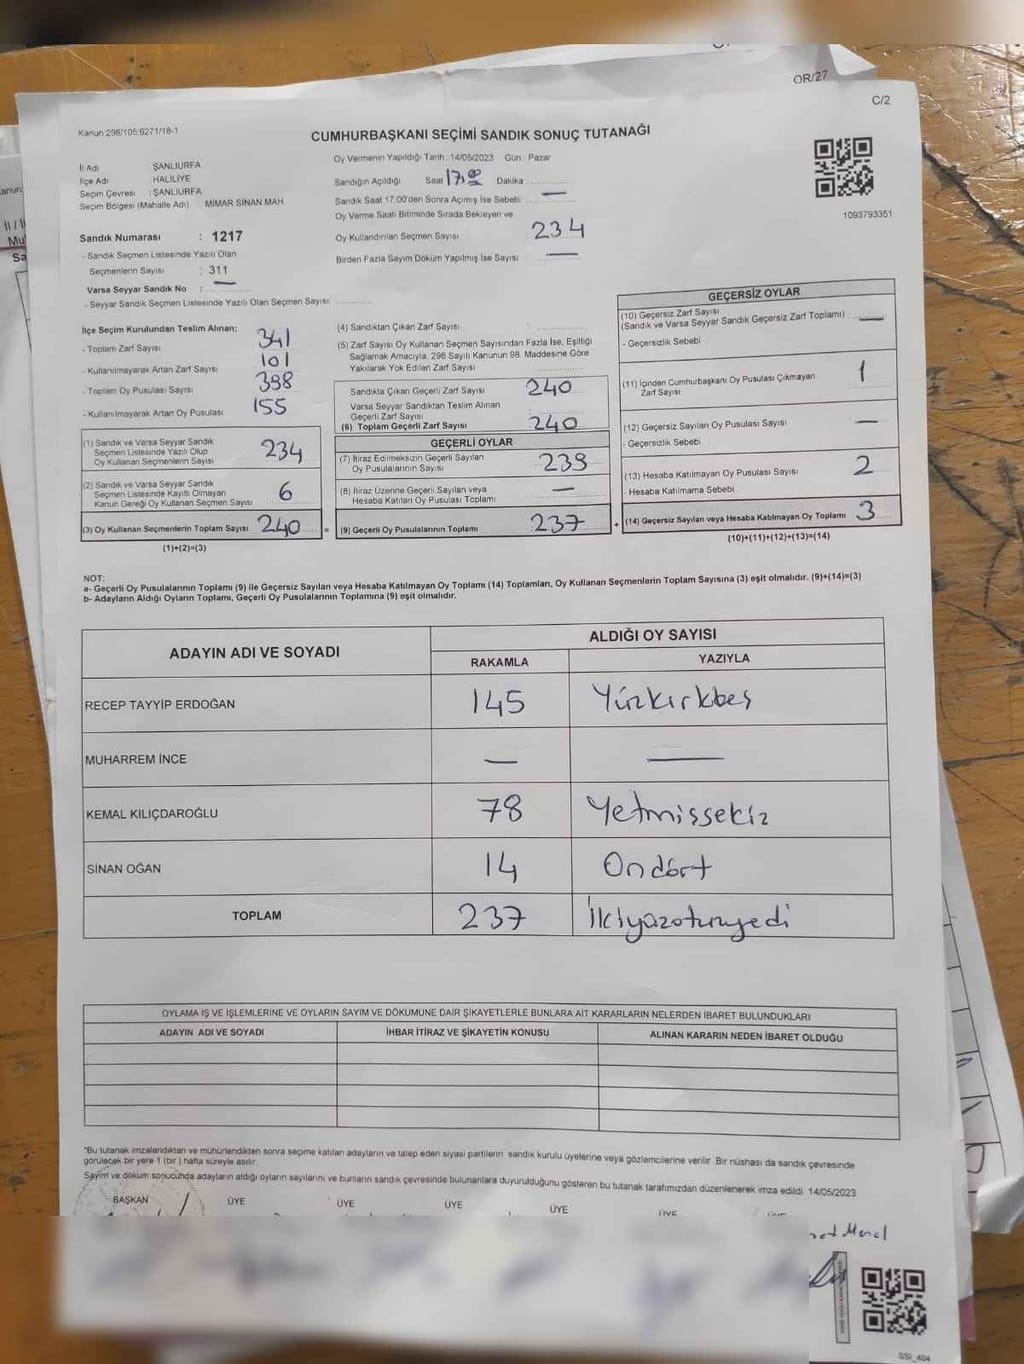 OR/27
C/2
Kanun:298/105;6271/18-1
CUMHURBAŞKANI SEÇİMİ SANDIK SONUÇ TUTANAĞI
İl Adı ŞANLIURFA
İlçe Adı HALİLİYE
Seçim Çevresi : ŞANLIURFA
Seçim Bölgesi (Mahalle Adı) MİMAR SİNAN MAH
Sandık Numarası : 1217
- Sandık Seçmen Listesinde Yazılı Olan
Seçmenlerin Sayısı : 311
Varsa Seyyar Sandık No : —
- Seyyar Sandık Seçmen Listesinde Yazılı Olan Seçmen Sayısı
Oy Vermenin Yapıldığı Tarih : 14/05/2023 Gün : Pazar
Sandığın Açıldığı Saat 17:00 Dakika
Sandık Saat 17.00'den Sonra Açımış İse Sebebi : —
Oy Verme Saati Bitiminde Sırada Bekleyen ve
Oy Kullandırılan Seçmen Sayısı : 234
Birden Fazla Sayım Döküm Yapılmış İse Sayısı : —
1093793351
İlçe Seçim Kurulundan Teslim Alınan;
- Toplam Zarf Sayısı 341
- Kullanılmayarak Artan Zarf Sayısı 101
- Toplam Oy Pusulası Sayısı 398
- Kullanılmayarak Artan Oy Pusulası 155
(1) Sandık ve Varsa Seyyar Sandık
Seçmen Listesinde Yazılı Olup
Oy Kullanan Seçmenlerin Sayısı 234
(2) Sandık ve Varsa Seyyar Sandık
Seçmen Listesinde Kayıtlı Olmayan
Kanun Gereği Oy Kullanan Seçmen Sayısı 6
(3) Oy Kullanan Seçmenlerin Toplam Sayısı 240 =
(1)+(2)=(3)
(4) Sandıktan Çıkan Zarf Sayısı
(5) Zarf Sayısı Oy Kullanan Seçmen Sayısından Fazla İse, Eşitliği
Sağlamak Amacıyla, 298 Sayılı Kanunun 98. Maddesine Göre
Yakılarak Yok Edilen Zarf Sayısı
Sandıkta Çıkan Geçerli Zarf Sayısı 240
Varsa Seyyar Sandıktan Teslim Alınan
Geçerli Zarf Sayısı
(6) Toplam Geçerli Zarf Sayısı 240
GEÇERLİ OYLAR
(7) İtiraz Edilmeksizin Geçerli Sayılan
Oy Pusulalarının Sayısı 239
(8) İtiraz Üzerine Geçerli Sayılan veya
Hesaba Katılan Oy Pusulası Toplamı —
(9) Geçerli Oy Pusulalarının Toplamı 237 +
GEÇERSİZ OYLAR
(10) Geçersiz Zarf Sayısı
(Sandık ve Varsa Seyyar Sandık Geçersiz Zarf Toplamı) —
- Geçersizlik Sebebi
(11) İçinden Cumhurbaşkanı Oy Pusulası Çıkmayan
Zarf Sayısı 1
(12) Geçersiz Sayılan Oy Pusulası Sayısı —
- Geçersizlik Sebebi
(13) Hesaba Katılmayan Oy Pusulası Sayısı 2
- Hesaba Katılmama Sebebi
(14) Geçersiz Sayılan veya Hesaba Katılmayan Oy Toplamı 3
(10)+(11)+(12)+(13)=(14)
NOT:
a- Geçerli Oy Pusulalarının Toplamı (9) ile Geçersiz Sayılan veya Hesaba Katılmayan Oy Toplamı (14) Toplamları, Oy Kullanan Seçmenlerin Toplam Sayısına (3) eşit olmalıdır. (9)+(14)=(3)
b- Adayların Aldığı Oyların Toplamı, Geçerli Oy Pusulalarının Toplamına (9) eşit olmalıdır.
ADAYIN ADI VE SOYADI ALDIĞI OY SAYISI
RAKAMLA YAZIYLA
RECEP TAYYİP ERDOĞAN 145 Yüzkırkbeş
MUHARREM İNCE — —
KEMAL KILIÇDAROĞLU 78 Yetmişsekiz
SİNAN OĞAN 14 Ondört
TOPLAM 237 İkiyüzotuzyedi
OYLAMA İŞ VE İŞLEMLERİNE VE OYLARIN SAYIM VE DÖKÜMÜNE DAİR ŞİKAYETLERLE BUNLARA AİT KARARLARIN NELERDEN İBARET BULUNDUKLARI
ADAYIN ADI VE SOYADI İHBAR İTİRAZ VE ŞİKAYETİN KONUSU ALINAN KARARIN NEDEN İBARET OLDUĞU
"Bu tutanak imzalandıktan ve mühürlendikten sonra seçime katılan adayların ve talep eden siyasi partilerin sandık kurulu üyelerine veya gözlemcilerine verilir. Bir nüshası da sandık çevresinde
görülecek bir yere 1 (bir) hafta süreyle asılır.
Sayım ve döküm sonucunda adayların aldığı oyların sayılarını ve bunların sandık çevresinde bulunanlara duyurulduğunu gösteren bu tutanak tarafımızdan düzenlenerek imza edildi. 14/05/2023
BAŞKAN ÜYE ÜYE ÜYE ÜYE ÜYE
SSI_404